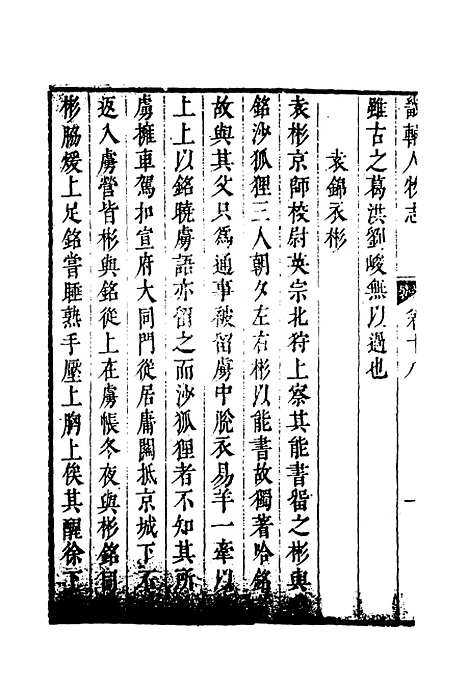 人物志
卷十八
雖古之葛洪劉峻無以過也
袁錦衣彬
袁彬京師校尉英宗北狩上察其能書留之彬與
銘沙狐狸三人朝夕左右彬以能書故獨著哈銘
故與其父只為通事被留虜中脫衣易羊一牽以
上上以銘曉虜語亦留之而沙狐狸者不知其所
虜擁車駕扣宣府大同門從居庸關抵京城下不
返入虜營皆彬與銘從上在虜帳冬夜與彬銘同
彬脇煖上足銘嘗睡熟手壓上胸上俟其醒徐下